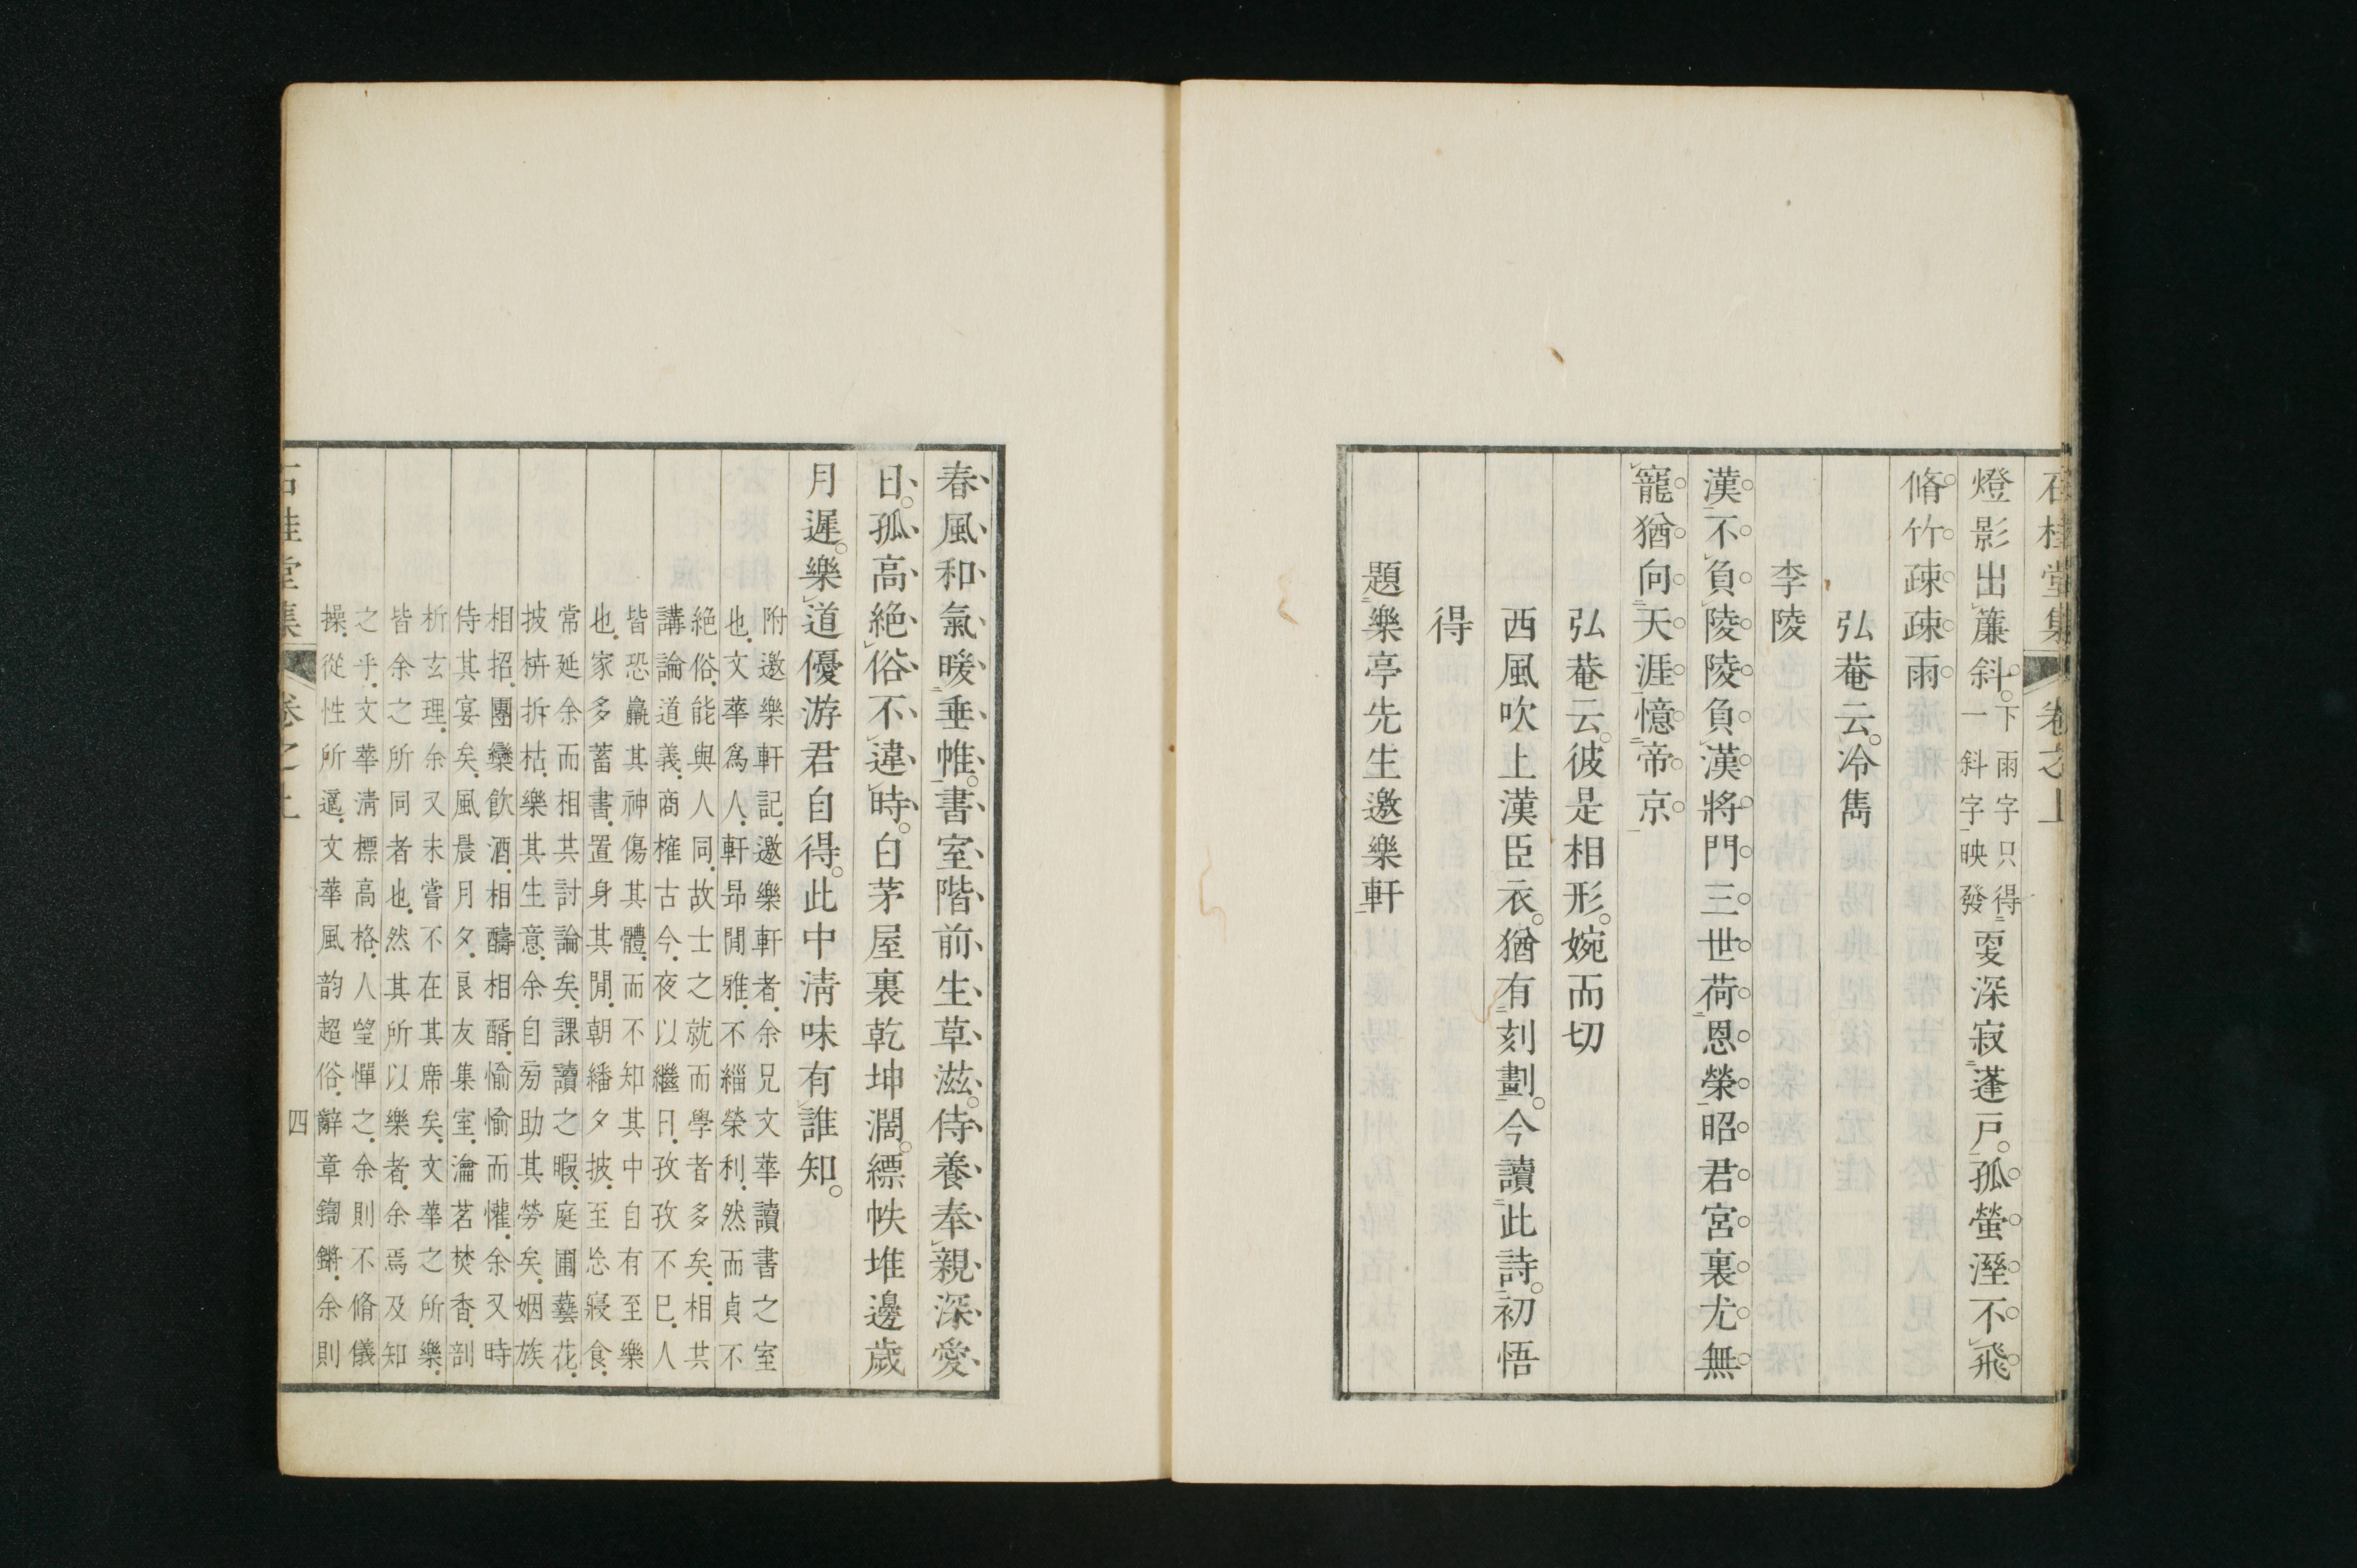 石桂堂集 卷之上
燈影出簾斜。下雨字只得一斜字映發更深寂蓬戸。孤螢溼不飛
脩竹疎疎雨
弘菴云。冷雋
李陵
漢不負陵陵負漢將門三世荷恩榮昭君宮裏尤無
寵猶向天涯憶帝京
弘菴云。彼是相形。婉而切
西風吹上漢臣衣。猶有刻劃。今讀此詩。初悟
得
題樂亭先生邀樂軒
春風和氣暖垂帷。書室階前生草滋。侍養奉親深愛
日。孤高絶俗不違時。白茅屋裏乾坤濶。縹帙堆邊歲
月遲。樂道優游君自得。此中淸味有誰知。
附邀樂軒記。邀樂軒者。余兄文華讀書之室
也。文華爲人。軒昂閒雅。不緇榮利。然而貞不
絶俗。能與人同。故士之就而學者多矣。相共
講論道義。商榷古今。夜以繼日。孜孜不已。人
皆恐羸其神傷其體。而不知其中自有至樂
也。家多蓄書。置身其閒。朝繙夕披。至忘寢食。
常延余而相共討論矣。課讀之暇。庭圃藝花。
披栟拆枯。樂其生意。余自旁助其勞矣。姻族
相招。團欒飮酒。相酬相酳。愉愉而懽。余又時
侍其宴矣。風晨月夕。良友集室。瀹茗焚香。剖
析玄理。余又未嘗不在其席矣。文華之所樂。
皆余之所同者也。然其所以樂者。余焉及知
之乎。文華淸標高格。人望憚之。余則不脩儀
操。從性所適。文華風韵超俗。辭章鏘鏘。余則
石桂堂集 卷之上 四